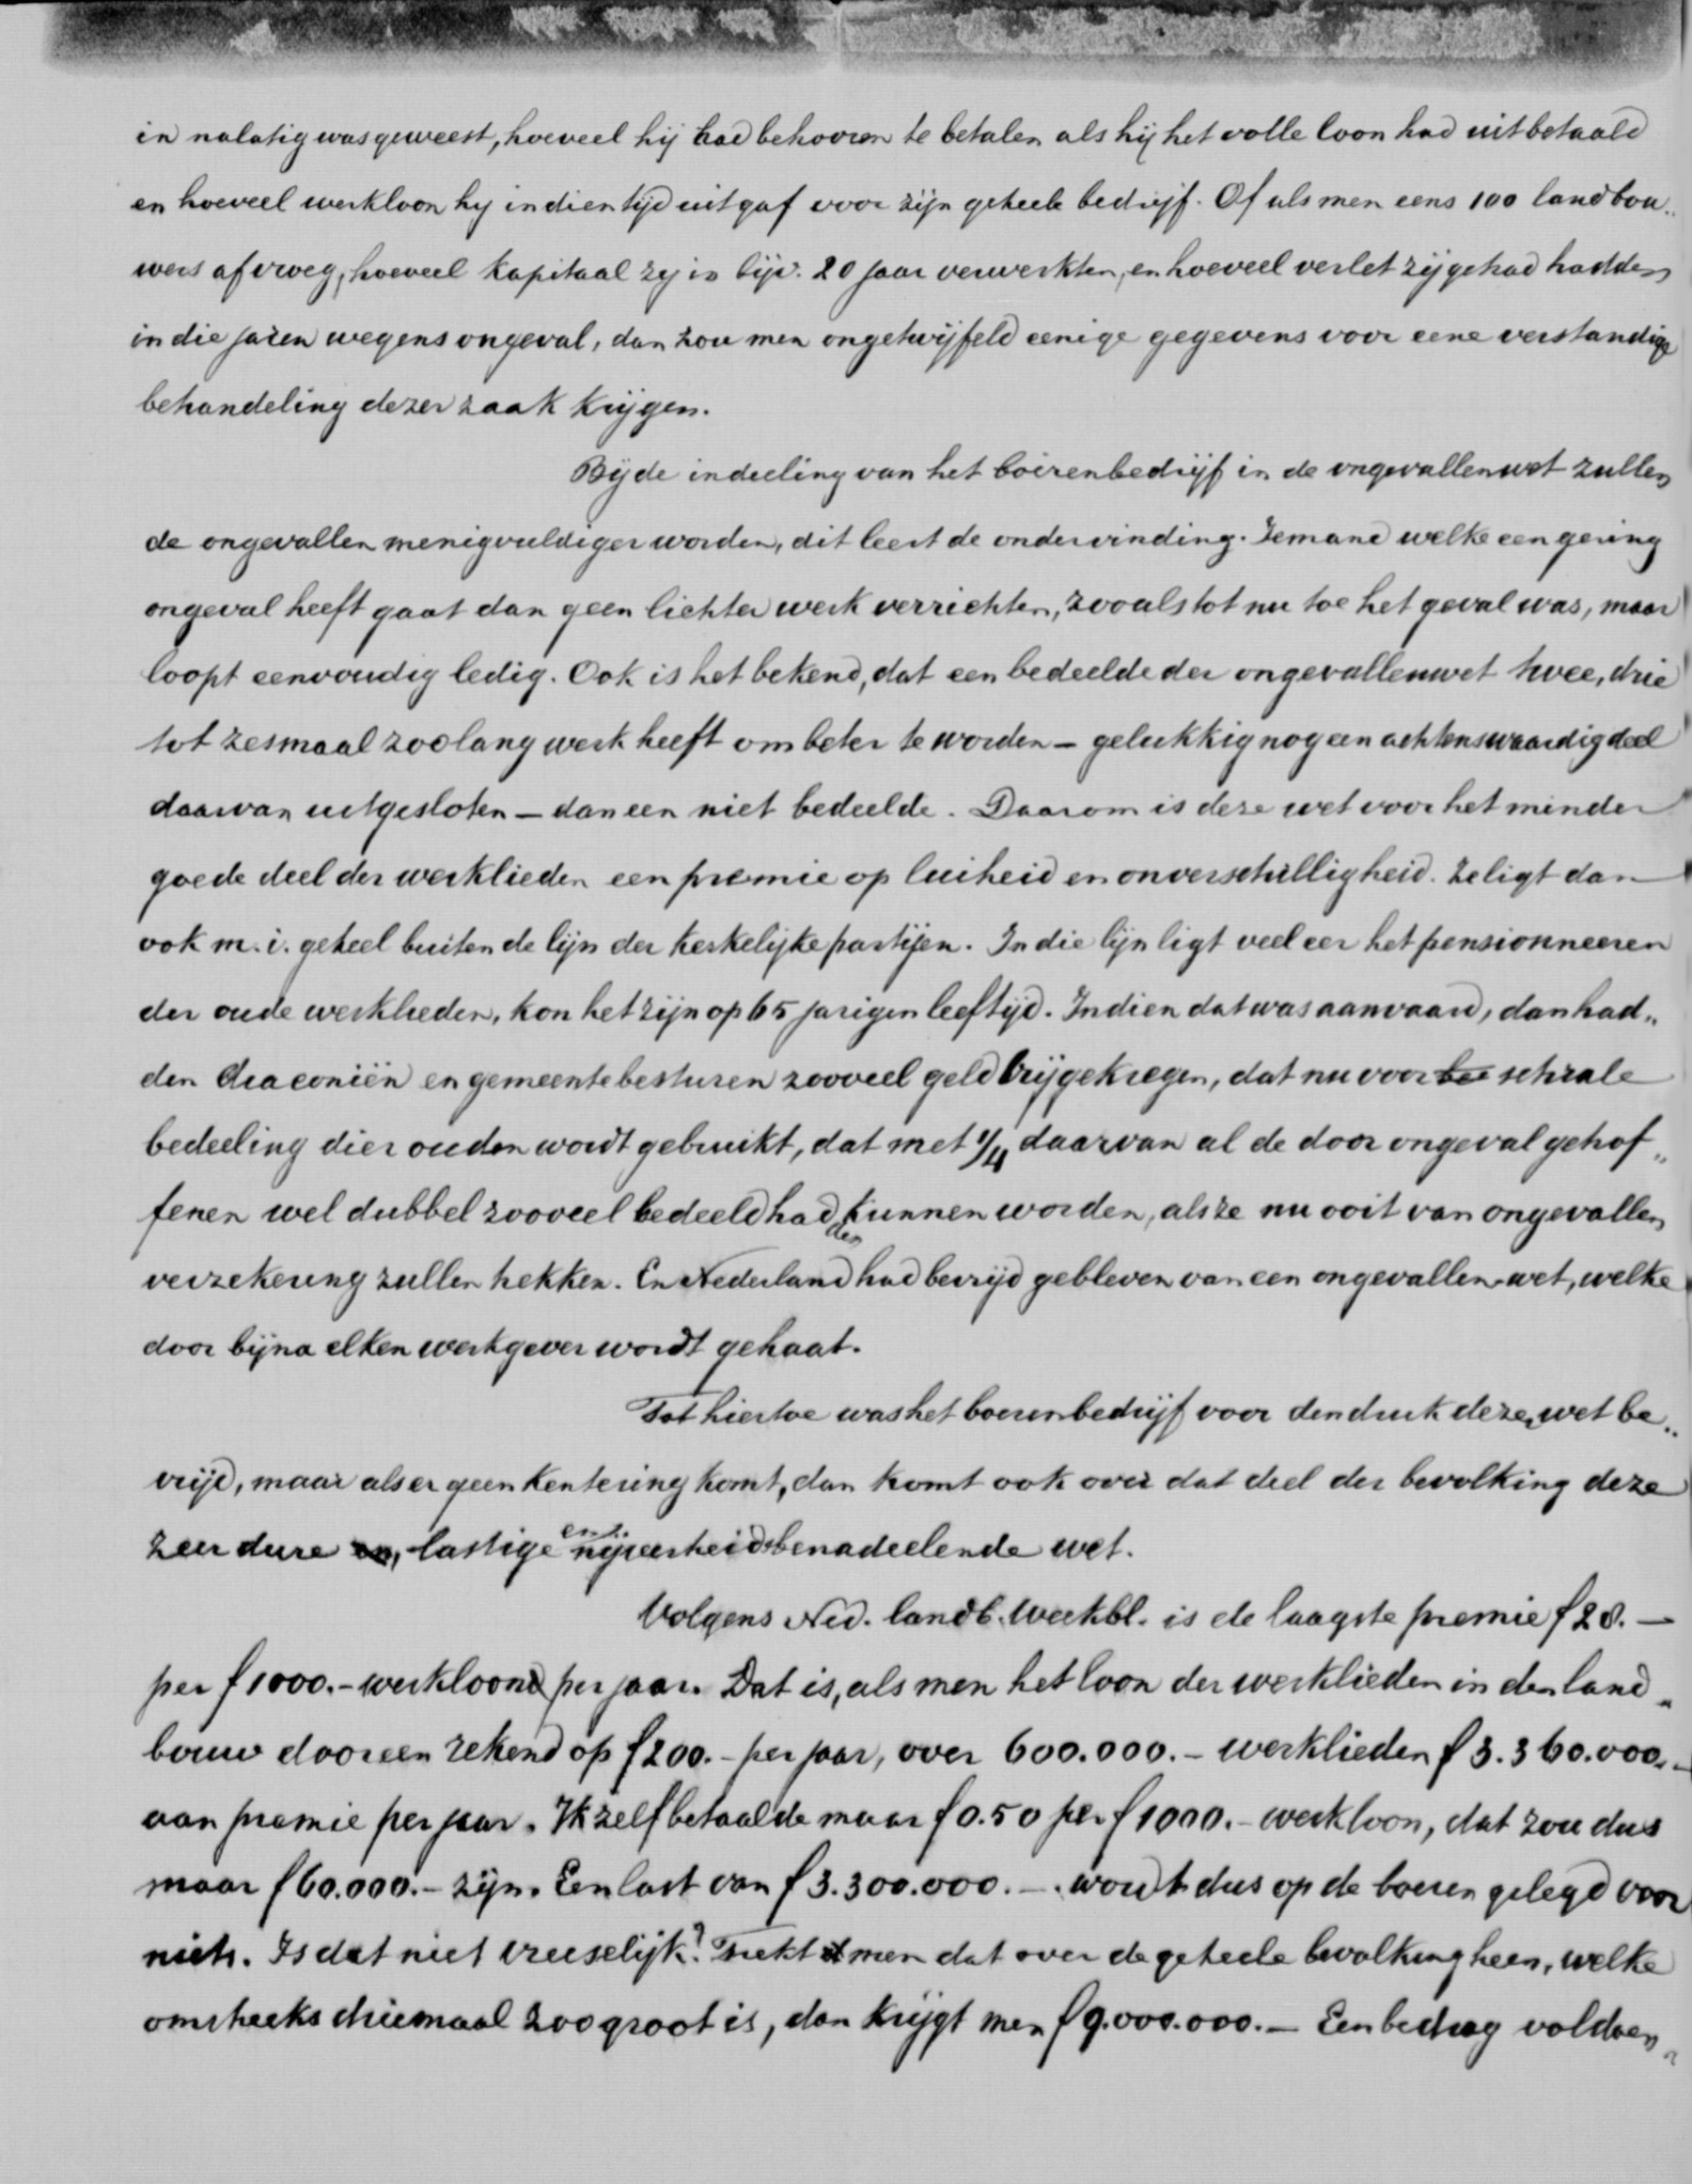 in nalatig was geweest, hoeveel hij had behooren te betalen als hij het volle loon had uitbetaald
en hoeveel werkloon hy in dien tijd uitgaf voor zijn geheele bedrijf. Of als men eens 100 landbou„
wers afvroeg, hoeveel kapitaal zij in bijv. 20 jaar verwerkten, en hoeveel verlet zij gehad hadden
in die jaren wegens ongeval, dan zou men ongetwijfeld eenige gegevens voor eene verstandige
behandeling dezer zaak krijgen.
Bij de indeeling van het boerenbedrijf in de ongevallenwet zullen
de ongevallen menigvuldiger worden, dit leert de ondervinding. Iemand welke een gering
ongeval heeft gaat dan geen lichter werk verrichten, zooals tot nu toe het geval was, maar
loopt eenvoudig ledig. Ook is het bekend, dat een bedeelde der ongevallenwet twee, drie
tot zesmaal zoolang werk heeft om beter te worden – gelukkig nog een achtenswaardig deel
daarvan uitgesloten – dan een niet bedeelde. Daarom is deze wet voor het minder
goede deel der werklieden een premie op luiheid en onverschilligheid. Ze ligt dan
ook m.i. geheel buiten de lijn der kerkelijke partijen. In die lijn ligt veeleer het pensionneeren
der oude werklieden, kon het zijn op 65 jarigen leeftijd. Indien dat was aanvaard, dan had„
den diaconiën en gemeentebesturen zooveel geld vrijgekregen, dat nu voor schrale
bedeeling dier ouden wordt gebruikt, dat met 1/4 daarvan al de door ongeval getrof„
fenen wel dubbel zooveel bedeeld hadden kunnen worden, als ze nu ooit van ongevallen
verzekering zullen trekken. En Nederland had bevrijd gebleven van een ongevallen-wet, welke
door bijna elken werkgever wordt gehaat.
Tot hiertoe was het boerenbedrijf voor den druk dezer wet be„
vrijd, maar als er geen kentering komt, dan komt ook over dat deel der bevolking deze
zeer dure en, lastige en nijverheid benadeelende wet.
Volgens Ned. landb. weekbl. is de laagste premie f 28.–
per f 1000.– werkloon per jaar. Dat is, als men het loon der werklieden in den land„
bouw dooreen rekend op f 200.– per jaar, over 600.000.– werklieden f 3.360.000.–
aan premie per jaar. Ik zelf betaalde maar f 0.50 per f 1000.– werkloon, dat zou dus
maar f 60.000.– zijn. Een last van f 3.300.000.– wordt dus op de boeren gelegd voor
niets. Is dat niet vreeselijk? Trekt men dat over de geheele bevolking heen, welke
omstreeks driemaal zoo groot is, dan krijgt men f 9.000.000.– Een bedrag voldoen„